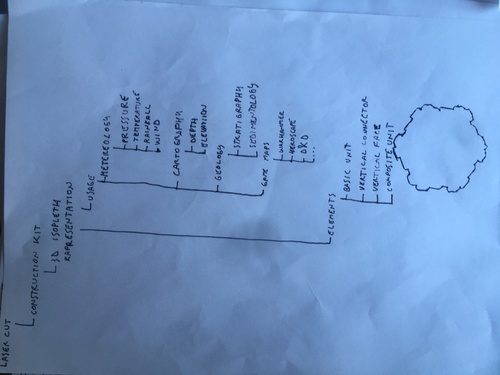 LASER CUT
CONSTRUCTION KIT
3D ISOPLETH
RAPRESENTATION
USAGE
METEREOLOGY
PRESSURE
TEMPERATURE
RAINFALL
WIND
CARTOGRAPHY
DEPTH
ELEVATION
GEOLOGY
STRATIGRAPHY
SEDIMENTOLOGY
GAME MAPS
WARHAMMER
HEROSCAPE
D&D
...
ELEMENTS
BASIC UNIT
VERTICAL CONNECTOR
VERTICAL FACE
COMPOSITE UNIT